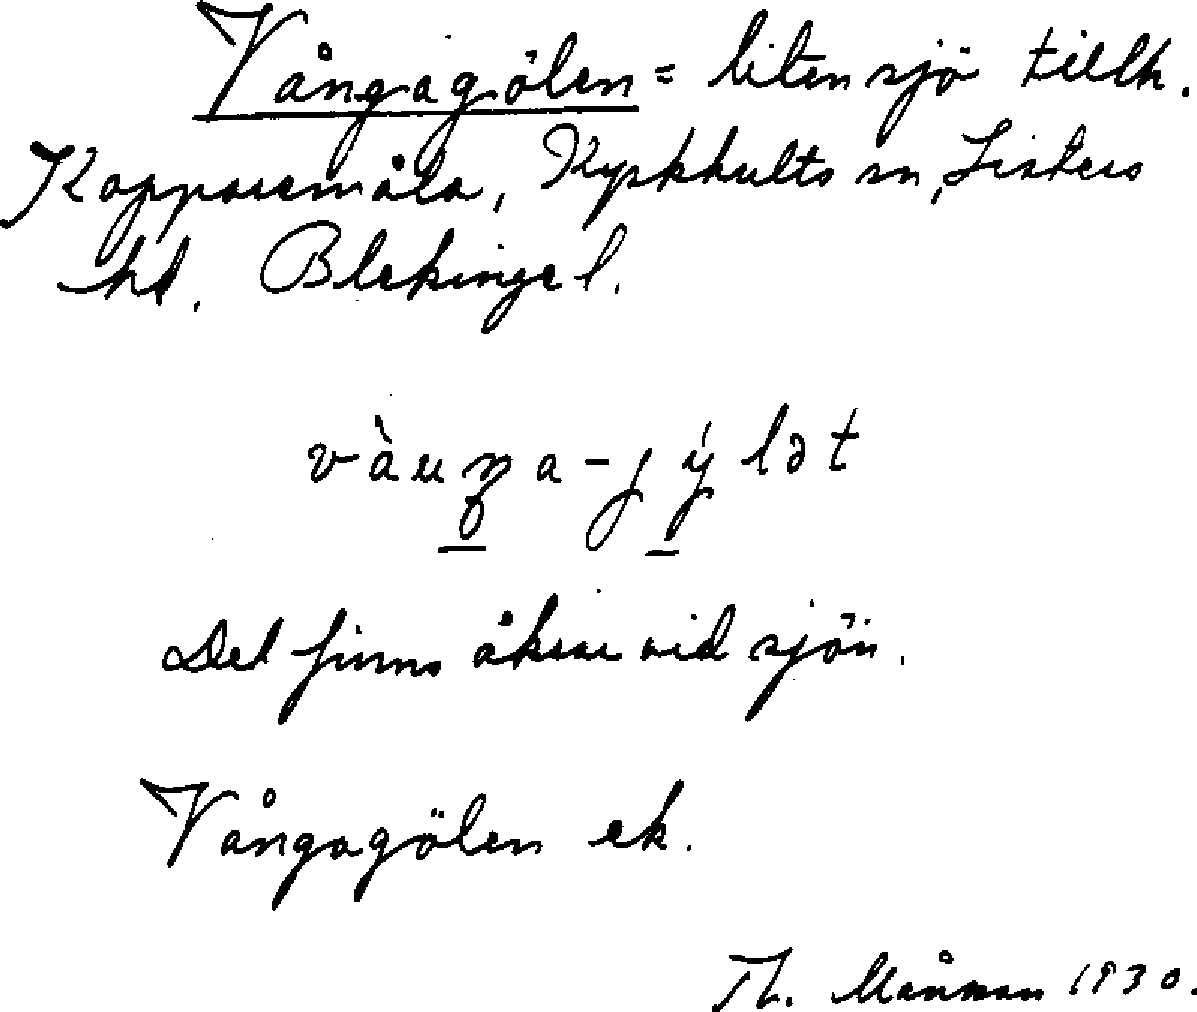 Vångagölen = liten sjö tillh.
Kopparemåla, Kyrkhults sn, Listers
hd. Blekinge l.
vàuŋa-jýlət
Det finns åkrar vid sjön.
Vångagölen ek.
Th. Månsson 1930.